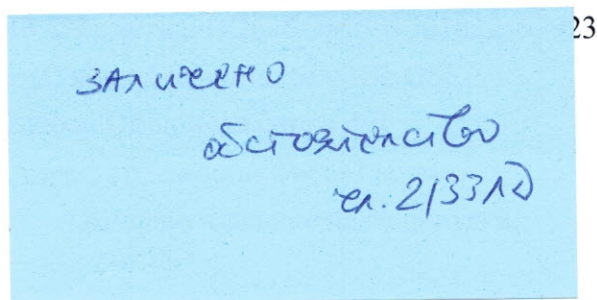 23
заличено
обстоятелство
чл. 2/33ЛД